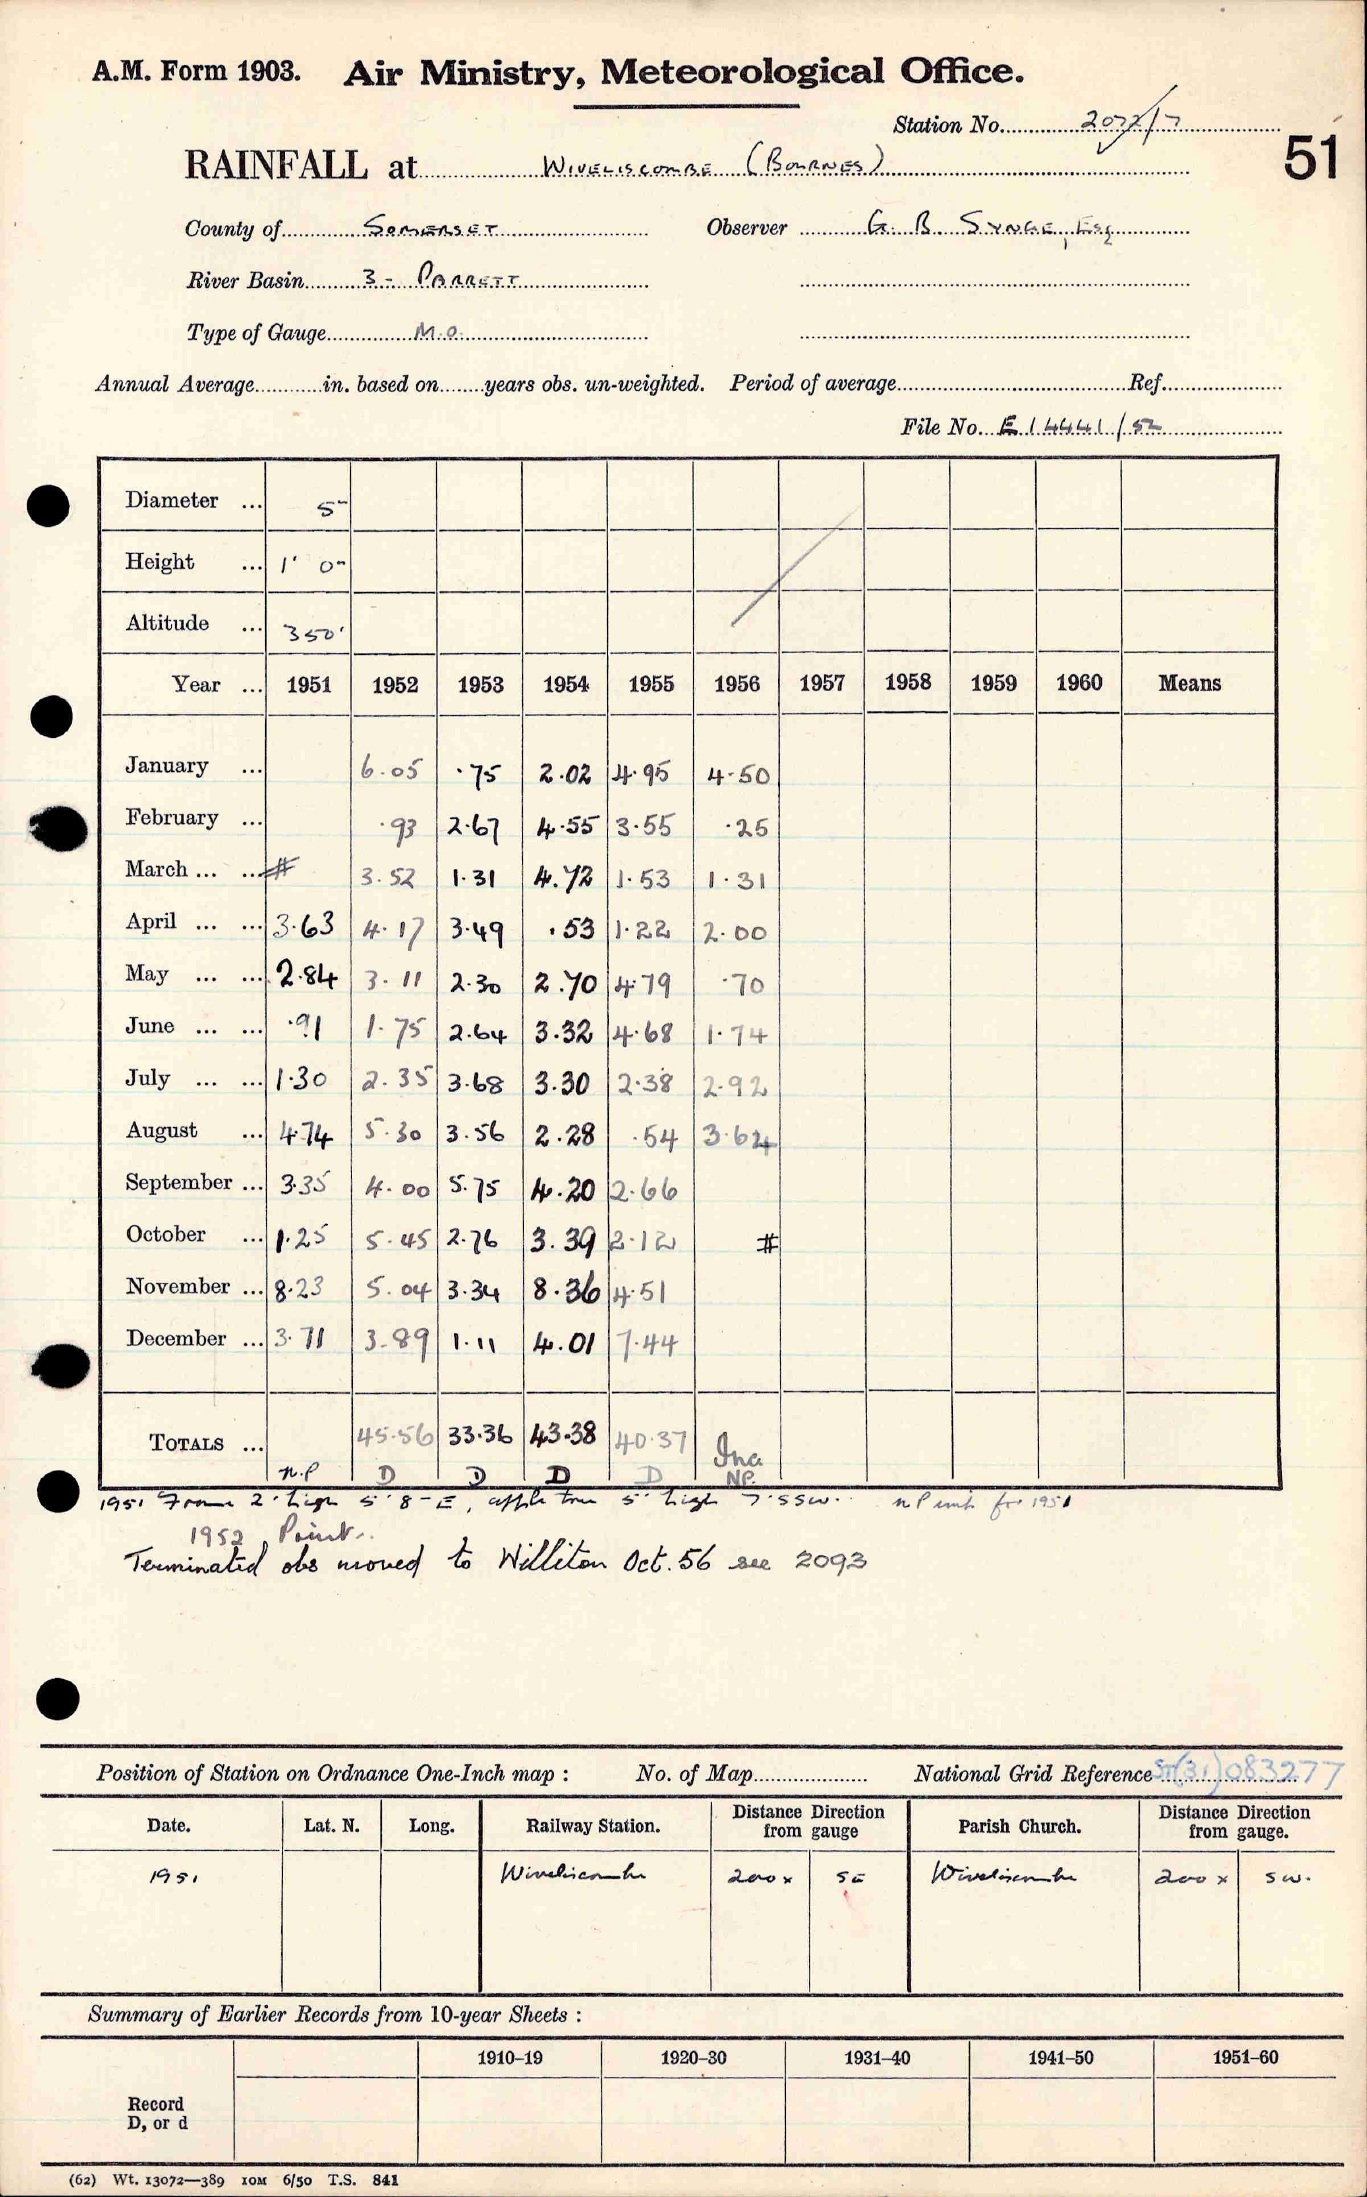 A.M. Form 1903. Air Ministry, Meteorological Office.
Station No. 2072/7
51
RAINFALL at WIVELISCOMBE (BOURNES)
County of SOMERSET Observer G. B. SYNGE, Esq
River Basin 3 - PARRETT
Type of Gauge M.O.
Annual Average in. based on years obs. un-weighted. Period of average Ref.
File No. E14441/52
Diameter ... 5"
Height ... 1' 0"
Altitude ... 350'
Year ... 1951 1952 1953 1954 1955 1956 1957 1958 1959 1960 Means
January ... 6.05 .75 2.02 4.95 4.50
February ... .93 2.67 4.55 3.55 .25
March ... ... # 3.52 1.31 4.72 1.53 1.31
April ... ... 3.63 4.17 3.49 .53 1.22 2.00
May ... ... 2.84 3.11 2.30 2.70 4.79 .70
June ... ... .91 1.75 2.64 3.32 4.68 1.74
July ... ... 1.30 2.35 3.68 3.30 2.38 2.92
August ... 4.74 5.30 3.56 2.28 .54 3.64
September ... 3.35 4.00 5.75 4.20 2.66
October ... 1.25 5.45 2.76 3.39 2.12 #
November ... 8.23 5.04 3.34 8.36 4.51
December ... 3.71 3.89 1.11 4.01 7.44
TOTALS ... 45.56 33.36 43.38 40.37 Inc
n.P D D D D NP.
1951 Frame 2' high 5' 8" E, apple tree 5' high 7' SSW. n P until for 1951
1952 Paint..
Terminated obs moved to Williton Oct. 56 see 2093
Position of Station on Ordnance One-Inch map : No. of Map National Grid Reference ST(31)083277
Date. Lat. N. Long. Railway Station. Distance Direction from gauge Parish Church. Distance Direction from gauge.
1951 Wiveliscombe 200x SE Wiveliscombe 200x SW.
Summary of Earlier Records from 10-year Sheets :
1910–19 1920–30 1931–40 1941–50 1951–60
Record
D, or d
(62) Wt. 13072—389 10M 6/50 T.S. 841